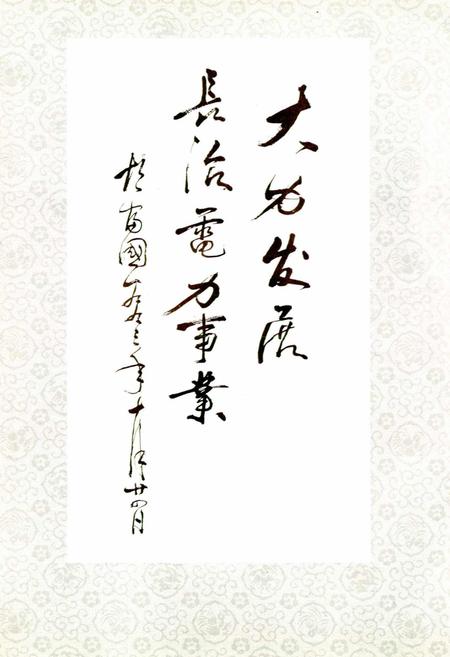 大力发展
長治電力事業
胡富國一九九三年十月廿四日